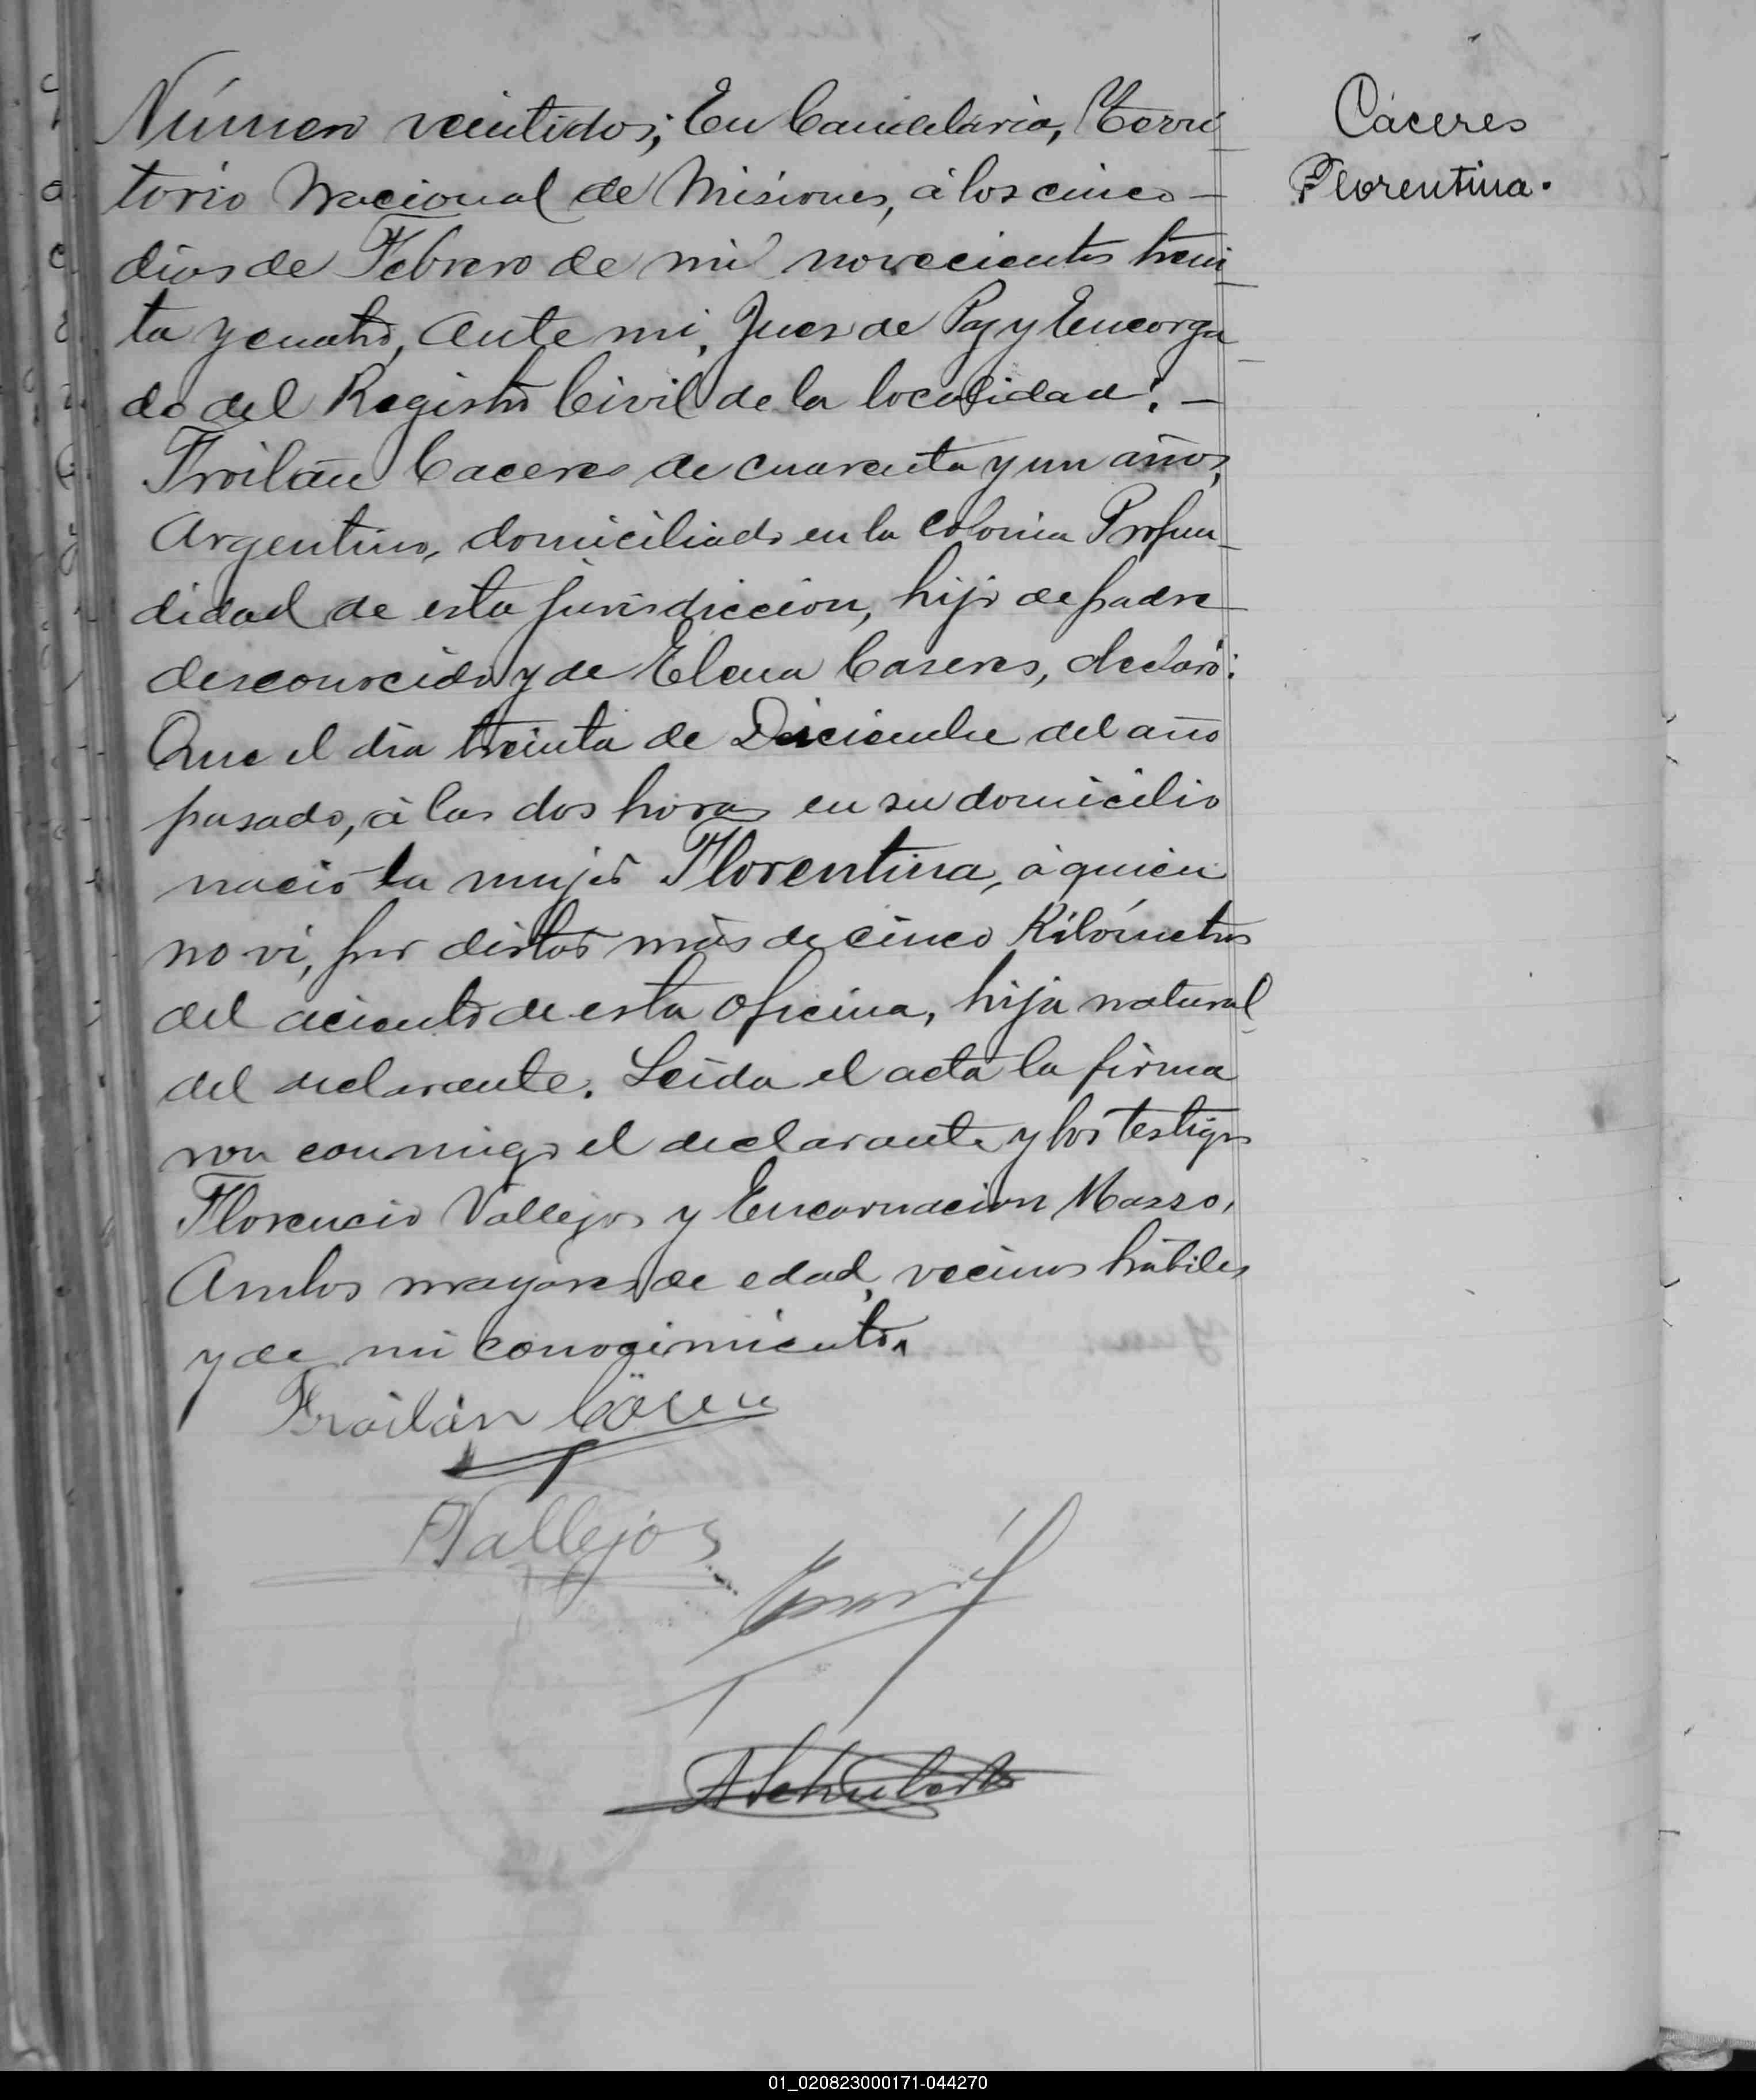 Número veintidos; En Candelaria, Terri
torio Nacional de Misiones, á los cinco —
dias de Febrero de mil novecientos trein
ta y cuatro, Ante mi, Juez de Paz y Encarga
do del Registro Civil de la localidad: —
Froilán Caceres de cuarenta y un años,
Argentino, domiciliado en la Colonia Profun_
didad de esta jurisdiccion, hijo de padre
desconocido y de Elena Caseres, declaró:
Que el dia treinta de Diciembre del año
pasado, á las dos horas en su domicilio
nació la mujer Florentina, á quien
no vi, por distar más de cinco Kilómetros
del aciento de esta Oficina, hija natural
del declarante. Leida el acta la firma
ron conmigo el declarante y los testigos
Florencio Vallejos y Encarnacion Masso,
Ambos mayores de edad, vecinos hábiles
y de mi conocimiento.
Froilán
Vallejos
ASchubert
Cáceres
Florentina.
01_020823000171-044270